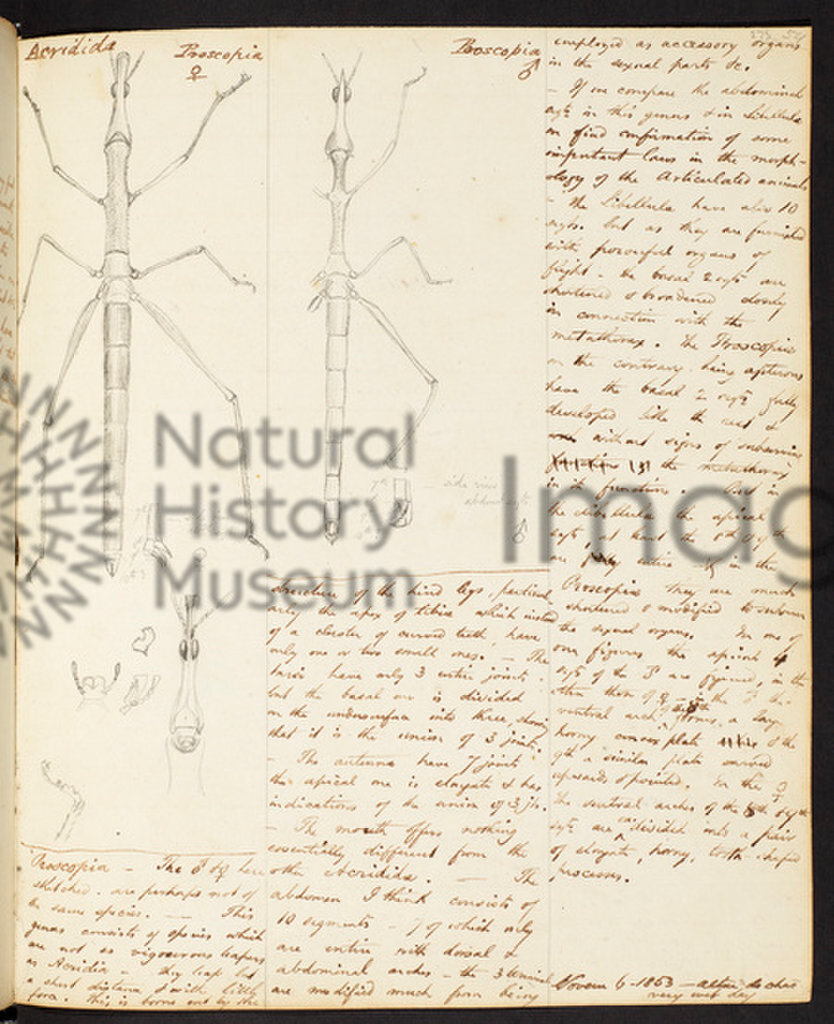 Acridida
Proscopia
♀
Proscopia
♂
side view
abdoml segts
♂
Proscopia - The ♂ & ♀ here
sketched are perhaps not of
the same species. — This
genus consists of species which
are not as vigourous leapers
as Acridia - they leap but
a short distance & with little
force. This is borne out by the
structure of the hind legs, particul-
arly the apex of tibia which instead
of a cluster of curved teeth, have
only one or two small ones. - The
tarsi have only 3 entire joints,
but the basal one is divided
on the undersurface into three, showing
that it is the union of 3 joints.
- The antennæ have 7 joints
the apical one is elongate & has
indications of the union of 3 jts.
- The mouth offers nothing
essentially different from the
other Acridida. - The
abdomen I think consists of
10 segments - 7 of which only
are entire with dorsal &
abdominal arches - the 3 terminal
are modified much from being
employed as accessory organs
in the sexual parts &c.
- If we compare the abdominal
segts in this genus & in Libellula
we find confirmation of some
important laws in the morph-
ology of the Articulated animals
- The Libellula have also 10
segts. but as they are furnished
with powerful organs of
flight - the basal 2 segts are
shortened & broadened closely
in connection with the
metathorax. The Proscopia
on the contrary being apterous
have the basal 2 segts fully
developed like the rest &
without signs of subserving
the metathorax
in its functions. But in
the Libellula the apical
segts at least the 8th of ♀
are entire - in the
Proscopia they are much
shortened & modified to subserve
the sexual organs. In one of
our figures the apical 4
segts of the ♂ are figured, in the
other them of ♀ - in the ♂ the
ventral arch of 8th forms a large
horny convex plate & the
9th a similar plate curved
upwards & pointed. In the ♀
the ventral arches of the 8th & 9th
segts are each divided into a pair
of elongate, horny, tooth-shaped
processes.
Novem 6 - 1853 - altar do chaõ
very wet day
Natural
History
Museum
Imag